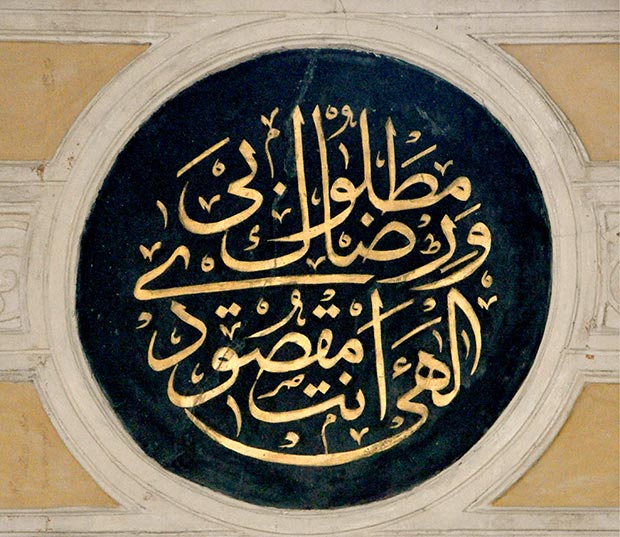 الهی انت مقصودی
ورضاك مطلوبی